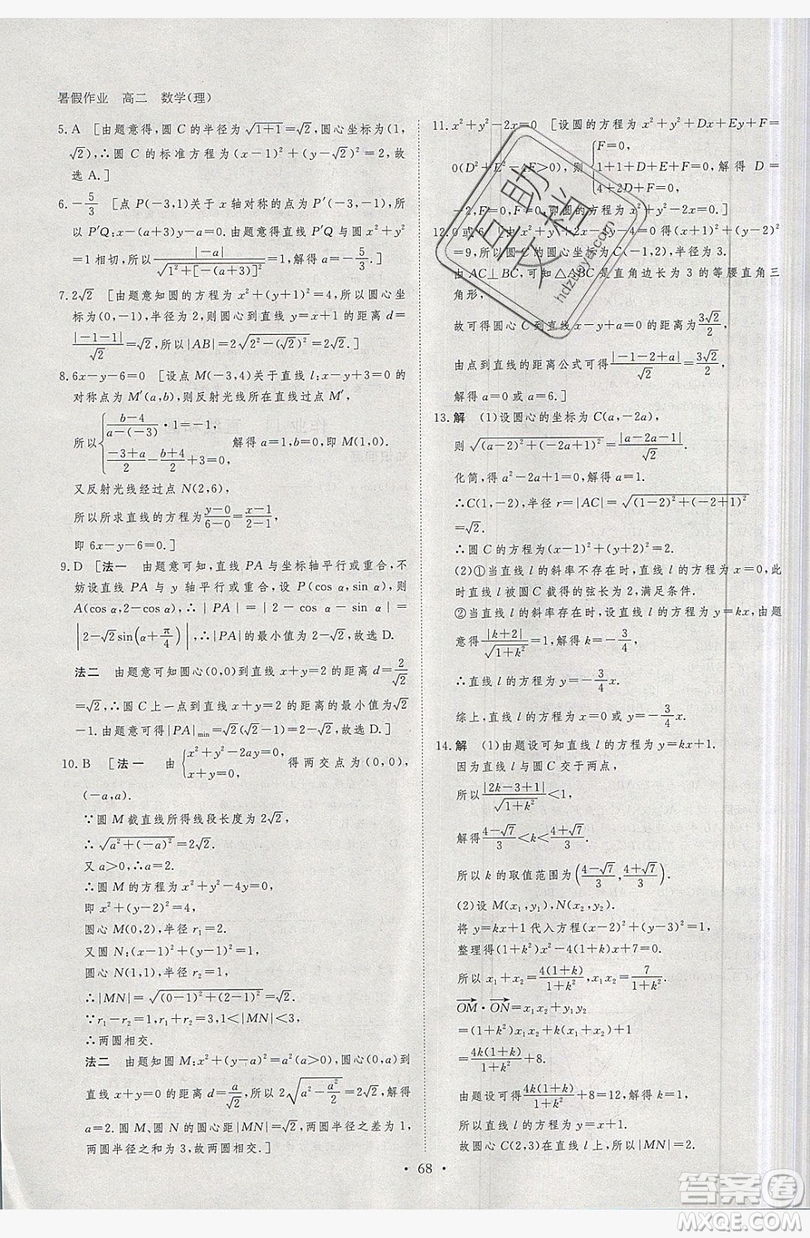 暑假作业 高二 数学(理)
5.A [由题意得,圆 C 的半径为√(1+1)=√2,圆心坐标为(1,
√2),∴圆 C 的标准方程为(x-1)²+(y-√2)²=2,故
选 A.]
6.-5/3 [点 P(-3,1)关于 x 轴对称的点为 P′(-3,-1),
所以 P′Q:x-(a+3)y-a=0,由题意得直线 P′Q 与圆 x²+y²
=1 相切,所以|-a|/√(1²+[-(a+3)]²)=1,解得 a=-5/3.]
7.2√2 [由题意知圆的方程为 x²+(y+1)²=4,所以圆心坐标
为(0,-1),半径为 2,则圆心到直线 y=x+1 的距离 d=
|-1-1|/√2=√2,所以|AB|=2√(2²-(√2)²)=2√2.]
8.6x-y-6=0 [设点 M(-3,4)关于直线 l:x-y+3=0
的对称点为 M′(a,b),则反射光线所在直线过点 M′,
所以{(b-4)/(a-(-3))·1=-1,
(-3+a)/2-(b+4)/2+3=0, 解得 a=1,b=0,即 M′(1,0).
又反射光线经过点 N(2,6),
所以所求直线的方程为(y-0)/(6-0)=(x-1)/(2-1),
即 6x-y-6=0.]
9.D [法一 由题意可知,直线 PA 与坐标轴平行或重合,不
妨设直线 PA 与 y 轴平行或重合,设 P(cos α,sin α),则
A(cos α,2-cos α),∴|PA|=|2-cos α-sin α|=
|2-√2sin(α+π/4)|,∴|PA|的最小值为 2-√2,故选 D.
法二 由题意可知圆心(0,0)到直线 x+y=2 的距离 d=2/√2
=√2,∴圆 C 上一点到直线 x+y=2 的距离的最小值为√2
-1.由题意可得|PA|min=√2(√2-1)=2-√2,故选 D.]
10.B [法一 由{x²+y²-2ay=0,
x+y=0, 得两交点为(0,0),
(-a,a).
∵圆 M 截直线所得线段长度为 2√2,
∴√(a²+(-a)²)=2√2.
又 a>0,∴a=2.
∴圆 M 的方程为 x²+y²-4y=0,
即 x²+(y-2)²=4,
圆心 M(0,2),半径 r₁=2.
又圆 N:(x-1)²+(y-1)²=1,
圆心 N(1,1),半径 r₂=1,
∴|MN|=√((0-1)²+(2-1)²)=√2.
∵r₁-r₂=1,r₁+r₂=3,1<|MN|<3,
∴两圆相交.
法二 由题知圆 M:x²+(y-a)²=a²(a>0),圆心(0,a)到
直线 x+y=0 的距离 d=a/√2,所以 2√(a²-a²/2)=2√2,解得 a
=2.圆 M,圆 N 的圆心距|MN|=√2,两圆半径之差为 1,
两圆半径之和为 3,故两圆相交.]
11.x²+y²-2x=0 [设圆的方程为 x²+y²+Dx+Ey+F=
0(D²+E²-4F>0),则{F=0,
1+1+D+E+F=0,
4+2D+F=0, 解得 D=
-2,E=0,F=0,即圆的方程为 x²+y²-2x=0.]
12.0或6 [由 x²+y²+2x-4y-4=0 得(x+1)²+(y-2)²
=9,所以圆 C 的圆心坐标为 C(-1,2),半径为 3.
由 AC⊥BC,可知△ABC 是直角边长为 3 的等腰直角三
角形,
故可得圆心 C 到直线 x-y+a=0 的距离为3√2/2,
由点到直线的距离公式可得|-1-2+a|/√2=3√2/2,
解得 a=0 或 a=6.]
13.解 (1)设圆心的坐标为 C(a,-2a),
则√((a-2)²+(-2a+1)²)=|a-2a-1|/√2.
化简,得 a²-2a+1=0,解得 a=1.
∴C(1,-2),半径 r=|AC|=√((1-2)²+(-2+1)²)
=√2.
∴圆 C 的方程为(x-1)²+(y+2)²=2.
(2)①当直线 l 的斜率不存在时,直线 l 的方程为 x=0,此
时直线 l 被圆 C 截得的弦长为 2,满足条件.
②当直线 l 的斜率存在时,设直线 l 的方程为 y=kx,由题
意得|k+2|/√(1+k²)=1,解得 k=-3/4,
∴直线 l 的方程为 y=-3/4x.
综上,直线 l 的方程为 x=0 或 y=-3/4x.
14.解 (1)由题设可知直线 l 的方程为 y=kx+1.
因为直线 l 与圆 C 交于两点,
所以|2k-3+1|/√(1+k²)<1,
解得(4-√7)/3<k<(4+√7)/3.
所以 k 的取值范围为((4-√7)/3,(4+√7)/3).
(2)设 M(x₁,y₁),N(x₂,y₂).
将 y=kx+1 代入方程(x-2)²+(y-3)²=1,
整理得(1+k²)x²-4(1+k)x+7=0.
所以 x₁+x₂=4(1+k)/(1+k²),x₁x₂=7/(1+k²).
OM·ON=x₁x₂+y₁y₂
=(1+k²)x₁x₂+k(x₁+x₂)+1
=4k(1+k)/(1+k²)+8.
由题设可得4k(1+k)/(1+k²)+8=12,解得 k=1,
所以直线 l 的方程为 y=x+1.
故圆心 C(2,3)在直线 l 上,所以|MN|=2.
· 68 ·
互助文档
hdzuoye.com
答案圈
MXQE.COM